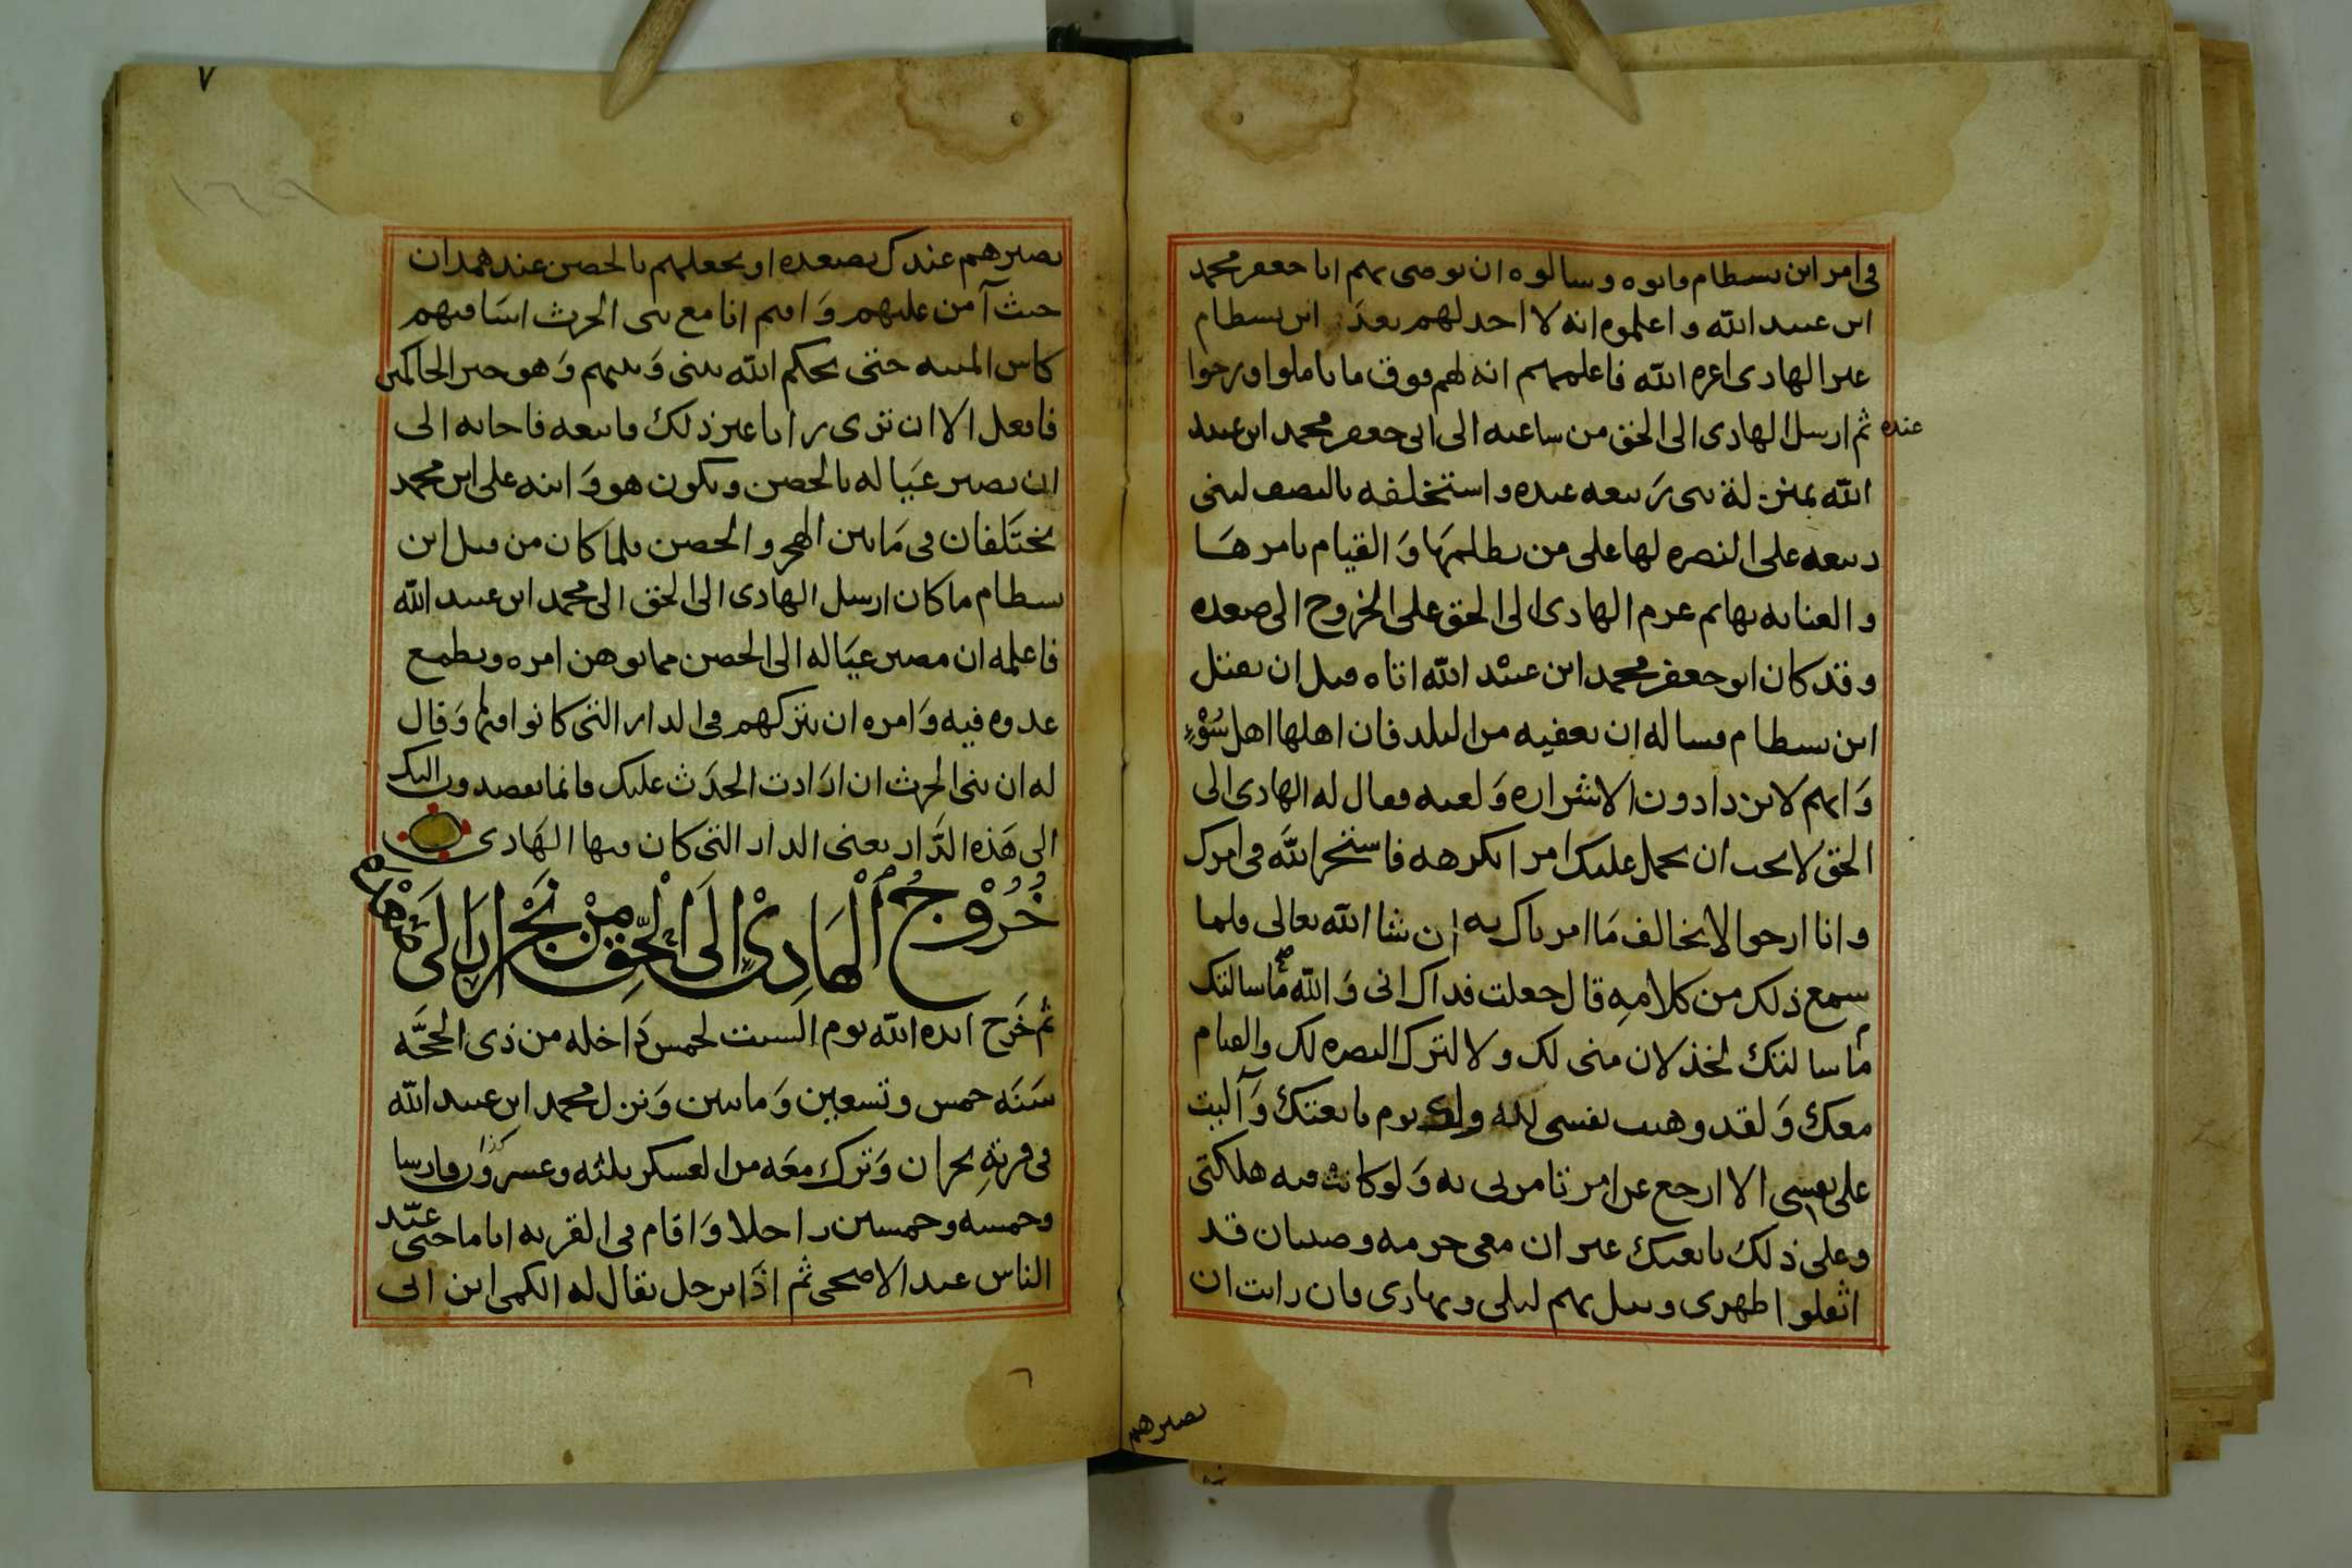 في امر ابن بسطام واتوه وسالوه ان يوصي بهم ابا جعفر محمد
ابن عبيد الله واعلموه انه لا احد لهم بعد ابن بسطام
غير الهادي اعزه الله فاعلمهم انه لهم فوق ما ياملوا ويرجوا
عنده ثم ارسل الهادي الى الحق من ساعته الى ابي جعفر محمد ابن عبيد
الله بمنزلة بني ربيعه عنده واستخلفه بالنصف لبني
ربيعه على النصره لها على من يظلمها وَالقيام بامرهَا
والعنايه بها ثم عزم الهادي الى الحق على الخروج الى صعده
وقد كان ابو جعفر محمد ابن عبيد الله اتاه قبل ان يقتل
ابن بسطام فساله ان يعفيه من البلد فان اهلها اهل سُوْءٍ
وَانهم لا يزدادون الا شراره وَلعنه فقال له الهادي الى
الحق لا يجب ان يحمل عليك امرا تكرهه فاستخر الله في امرك
وانا ارجوا لا يخالف مَا امرناك به ان شا الله تعالى فلما
سمع ذلك من كلامِه قال جعلت فداك اني وَالله ما سالتك
ما سالتك لخذلان مني لك ولا لترك النصره لك والقيام
معك وَلقد وهبت نفسي لله ولك يوم بايعتك وَآليت
على نفسي الا ارجع عن امر تامرني به وَلو كانت فيه هلكتي
وعلى ذلك بايعتك غير ان معي حرمه وصبيان قد
اثقلوا ظهري وشغل بهم ليلي ونهاري فان رايت ان
تصيرهم
٧
١٦٩
تصيرهم عندك بصعده او تجعلهم بالحصن عند همدان
حيث آمن عليهم وَاقيم انا مع بني الحرث اسَاقيهم
كاس المنيه حتى يحكم الله بيني وَبينهم وَهو خير الحاكمين
فافعل الا ان ترى رايا غير ذلك فاتبعه فاجابه الى
ان يصير عيَاله بالحصن ويكون هو وَابنه علي ابن محمد
يختَلفان في مَا بين الهجر والحصن فلما كان من قبل ابن
بسطام ما كان ارسل الهادي الى الحق الى محمد ابن عبيد الله
فاعلمه ان مصير عيَاله الى الحصن مما يوهن امره ويطمع
عدوه فيه وَامره ان يتركهم في الدار التي كانوا فيها وَقال
له ان بني الحرث ان ارَادت الحدَث عليك فانما يقصدون اليك
الى هَذه الدَّار يعني الدار التي كان فيها الهَادي
خُرُوْجُ اْلهَادِيْ اِلَى اْلحَقِّ مِنْ نَجْرَان اِلَى
ثم خَرَج ايده الله يوم السبت لخمس دَاخله من ذي الحجَّه
سَنَه خمس وتسعين وَماتين وَنزل محمد ابن عبيد الله
في قريَةِ نجران وَترك معَه من العسكر ثلثه وعشرون فارسا
وخمسه وخمسين راجلا وَاقام في القريه اياما حتى عيَّد
الناس عيد الاضحى ثم اذَا برجل يقال له الكمي ابن ابي
٦